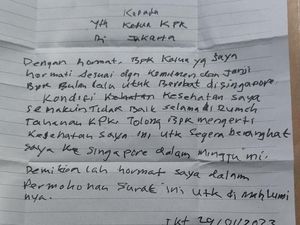 Kepada
Yth Ketua KPK
Di Jakarta
Dengan hormat. Bpk Ketua yg saya
hormati sesuai dgn Komitmen dan Janji
Bpk Bulan lalu untuk Berobat di Singapore.
Kondisi Kesehatan saya
semakin Tidak Baik selama di Rumah
Tahanan KPK. Tolong Bpk mengerti
Kesehatan saya ini utk segera berangkat
saya ke Singapore dalam minggu ini.
Demikian lah hormat saya dalam
Permohonan surat ini utk di maklumi
nya.
Jkt 29/01/2023